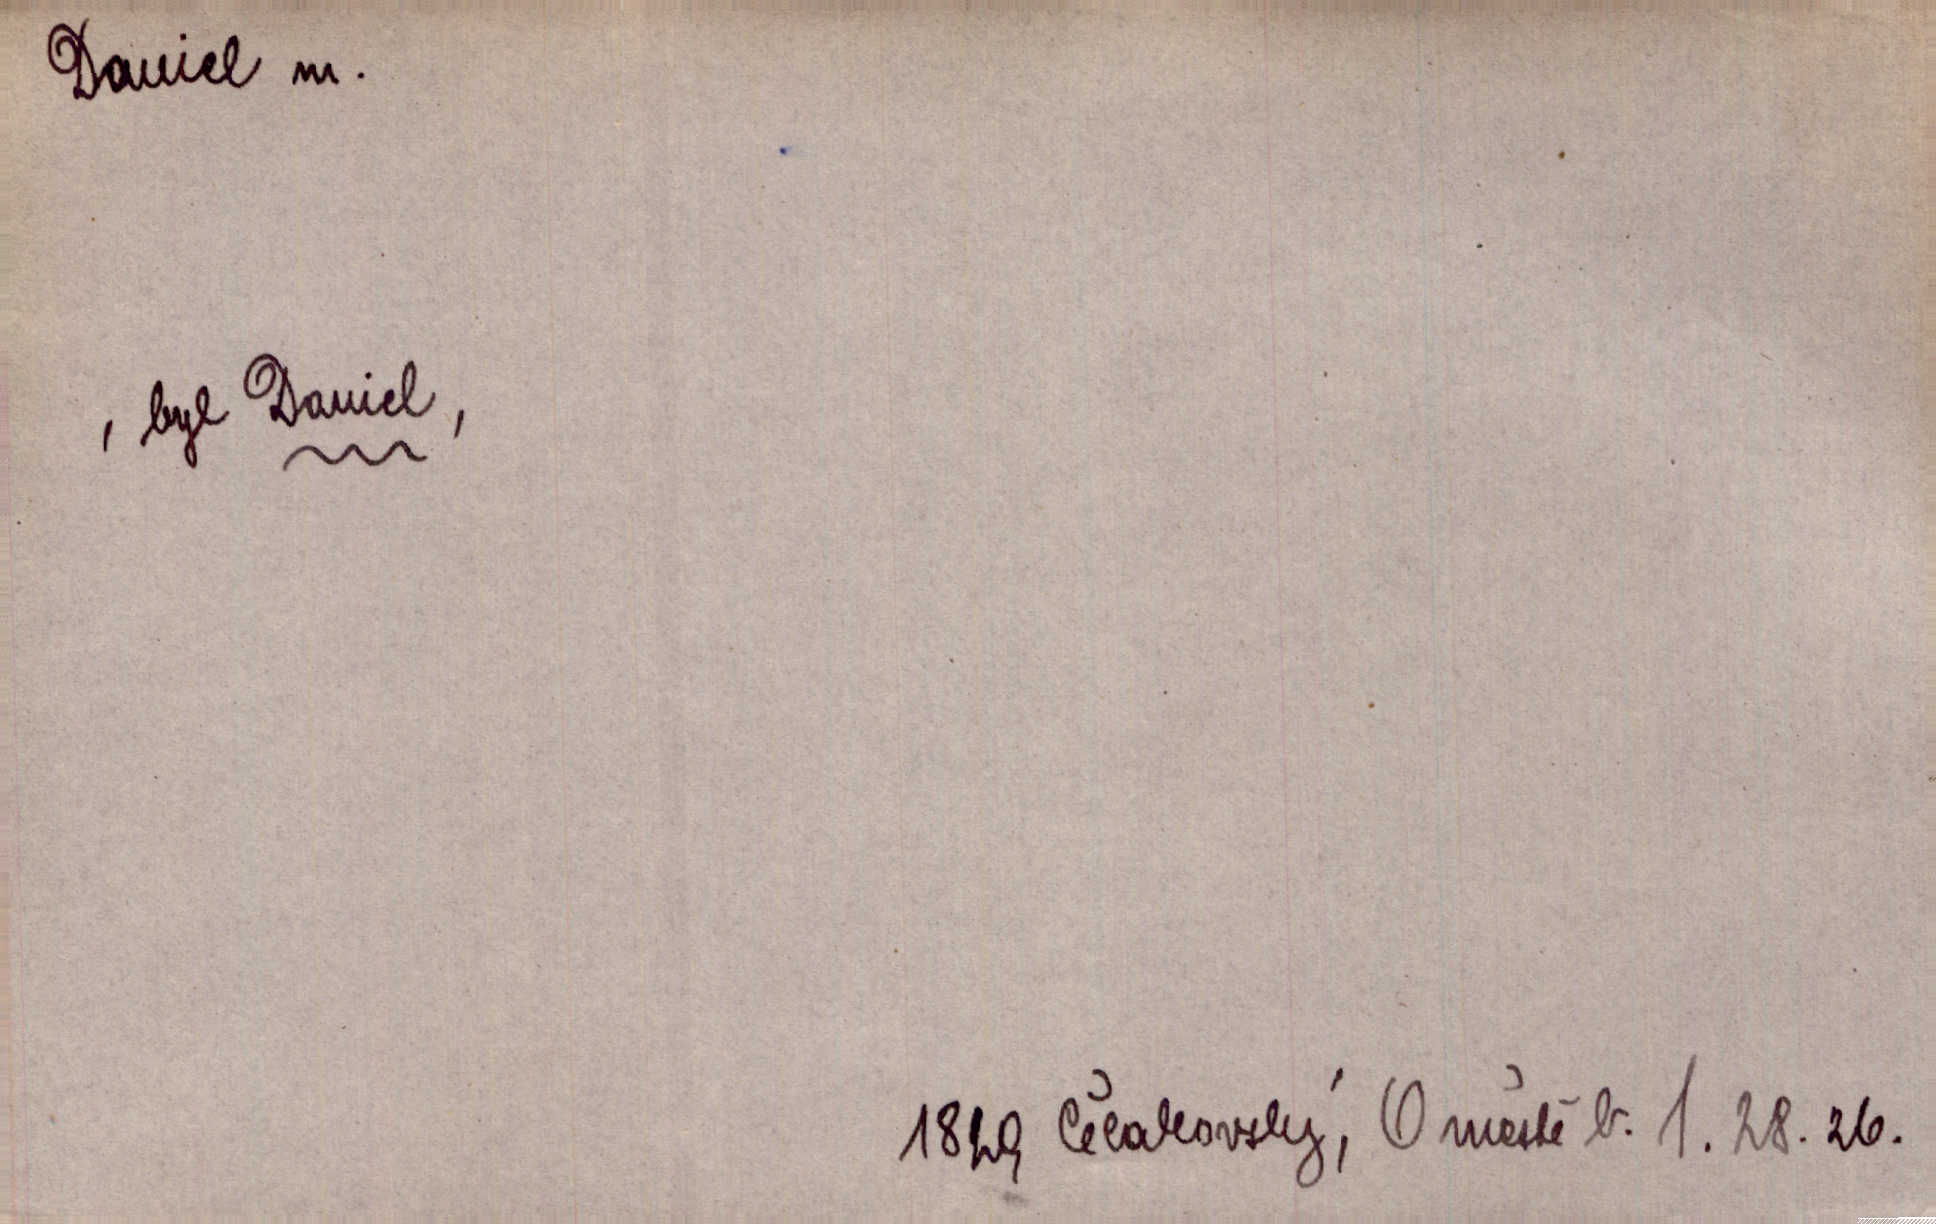 Daniel m.
, byl Daniel,
1829 Čelakovský, O městě b. 1. 28. 26.